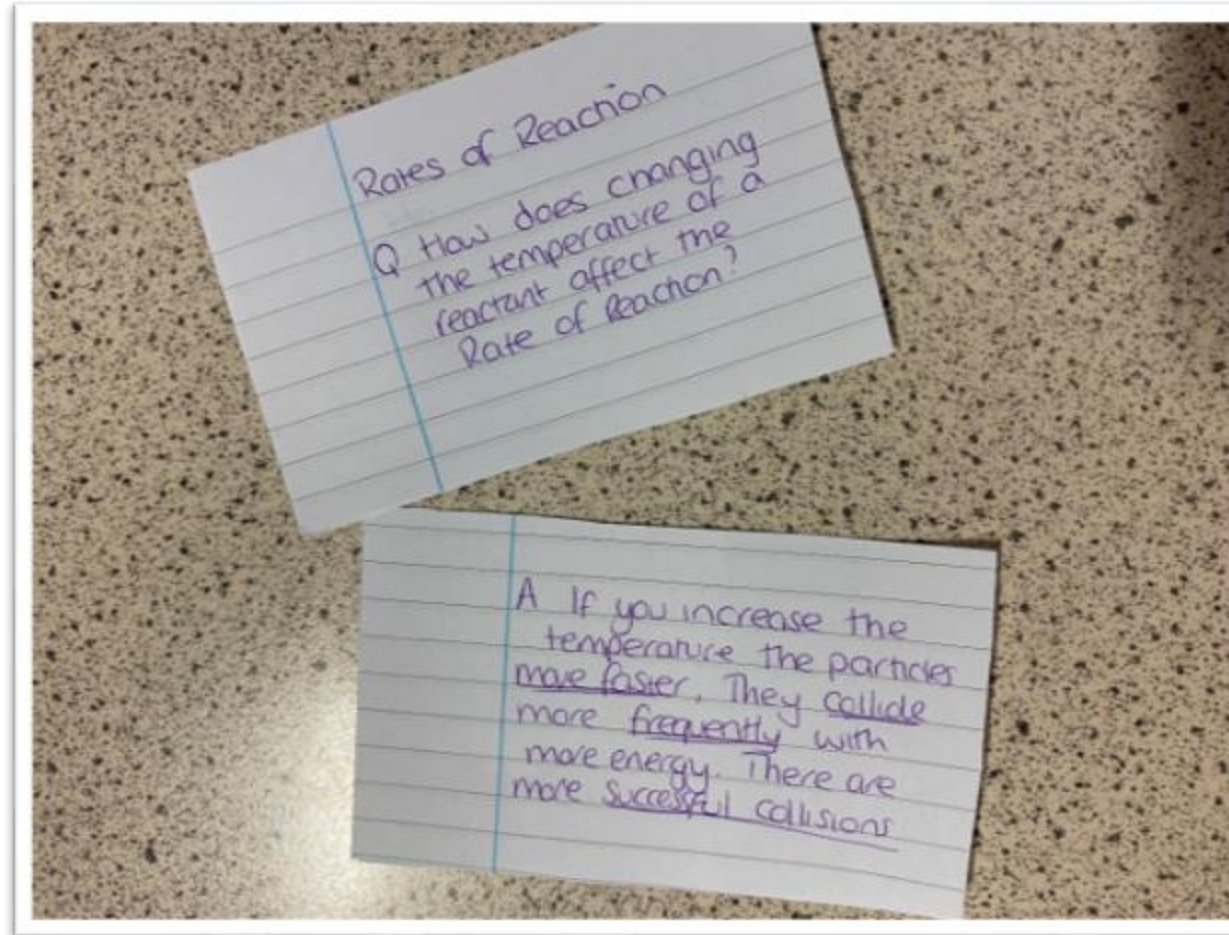 Rates of Reaction
Q How does changing
the temperature of a
reactant affect the
Rate of Reaction?
A If you increase the
temperature the particles
move faster. They collide
more frequently with
more energy. There are
more successful collisions